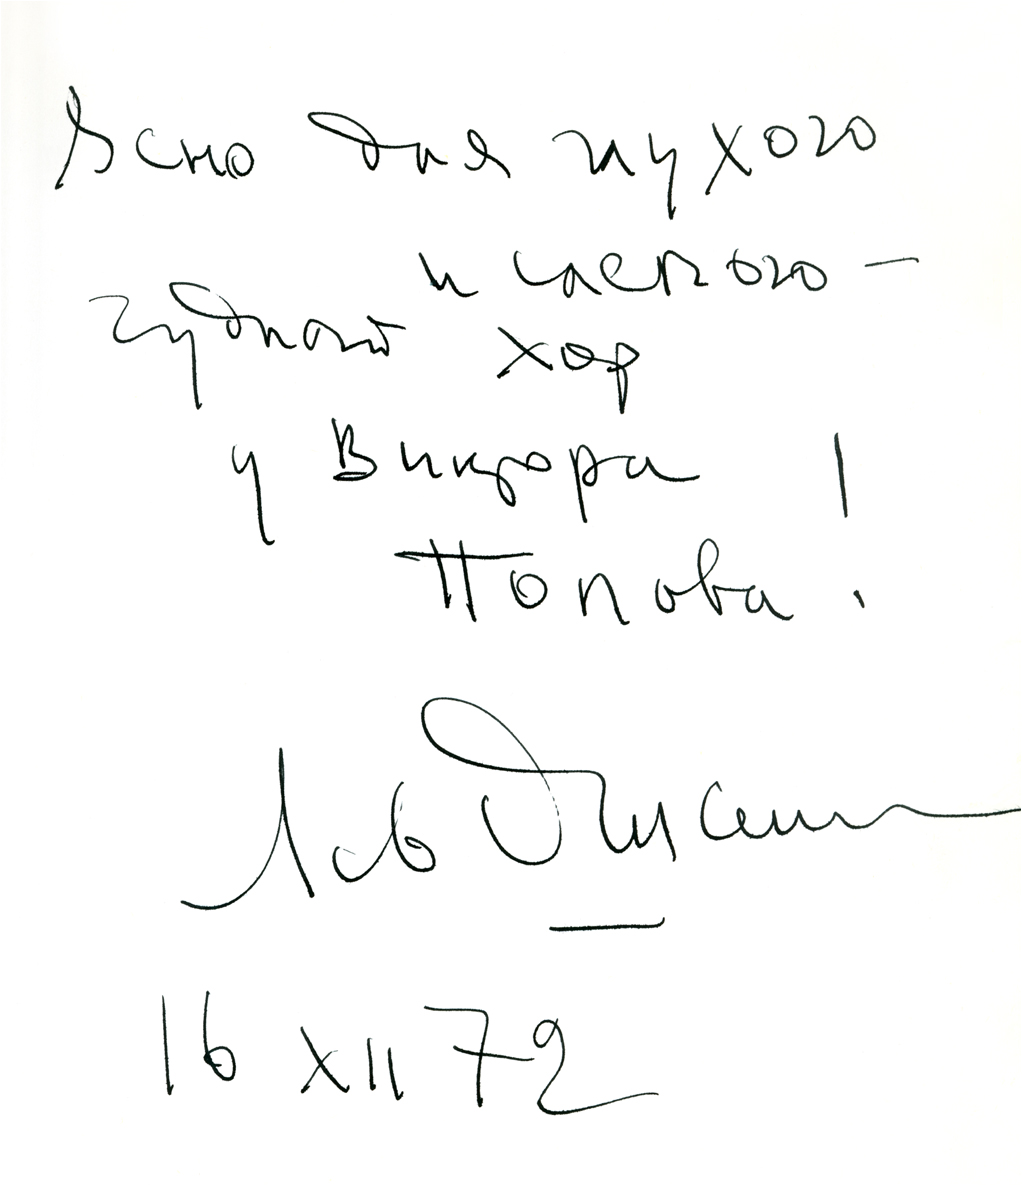 Ясно для глухого
и слепого –
чудный хор
у Виктора
Попова!
Лев Ошанин
16 XII 72